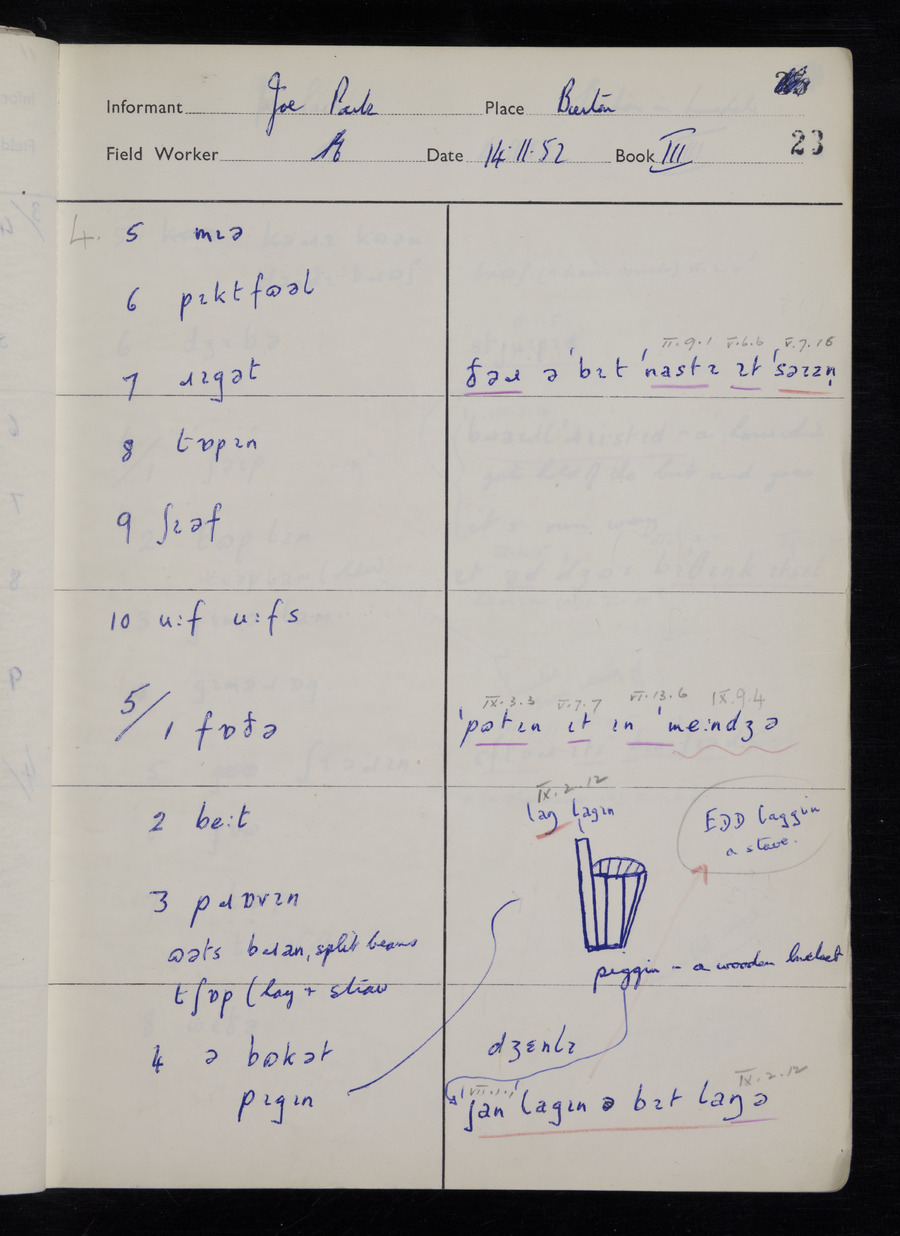 Informant Joe Park Place Burton
Field Worker Date 14·11·52 Book III
23
4. 5 mɪə
6 pɪktfɷəl
7 ɹɪgət
II.9.1 V.6.6 V.7.18
ðəɹ ə ˈbɪt ˈnastɪ ɪt ˈsəɪɪn̩
8 tɒpɪn
9 ʃɪəf
10 u:f u:fs
5/1 fɒðə
IX.3.3 V.7.7 VI.13.6 IX.9.4
ˈpətɪn ɪt ɪn ˈme:ndʒə
2 be:t
IX.2.12
laŋ lagɪn
EDD laggin
a stave.
3 pɹɒvɪn
ɷəts bɹan, split beans
piggin - a wooden bucket
tʃɒp (hay + straw
4 ə bɷkət
dʒɛnlɪ
pɪgɪn
VII.1.1 IX.2.12
ˈjan ˈlagɪn ə bɪt laŋə